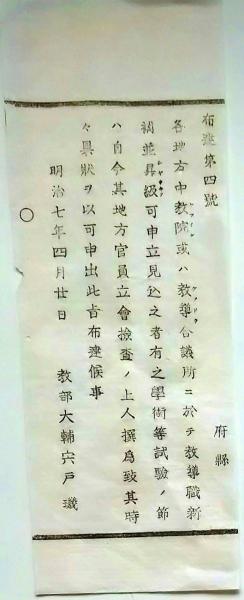 布達第四號
府縣
各地方中教院或ハ教導合議所ニ於テ教導職新
補並昇級可申立見込之者有之學術等試驗ノ節
ハ自今其地方官員立會撿査ノ上人撰爲致其時
々具狀ヲ以可申出此旨布達候事
明治七年四月廿日
教部大輔宍戸璣